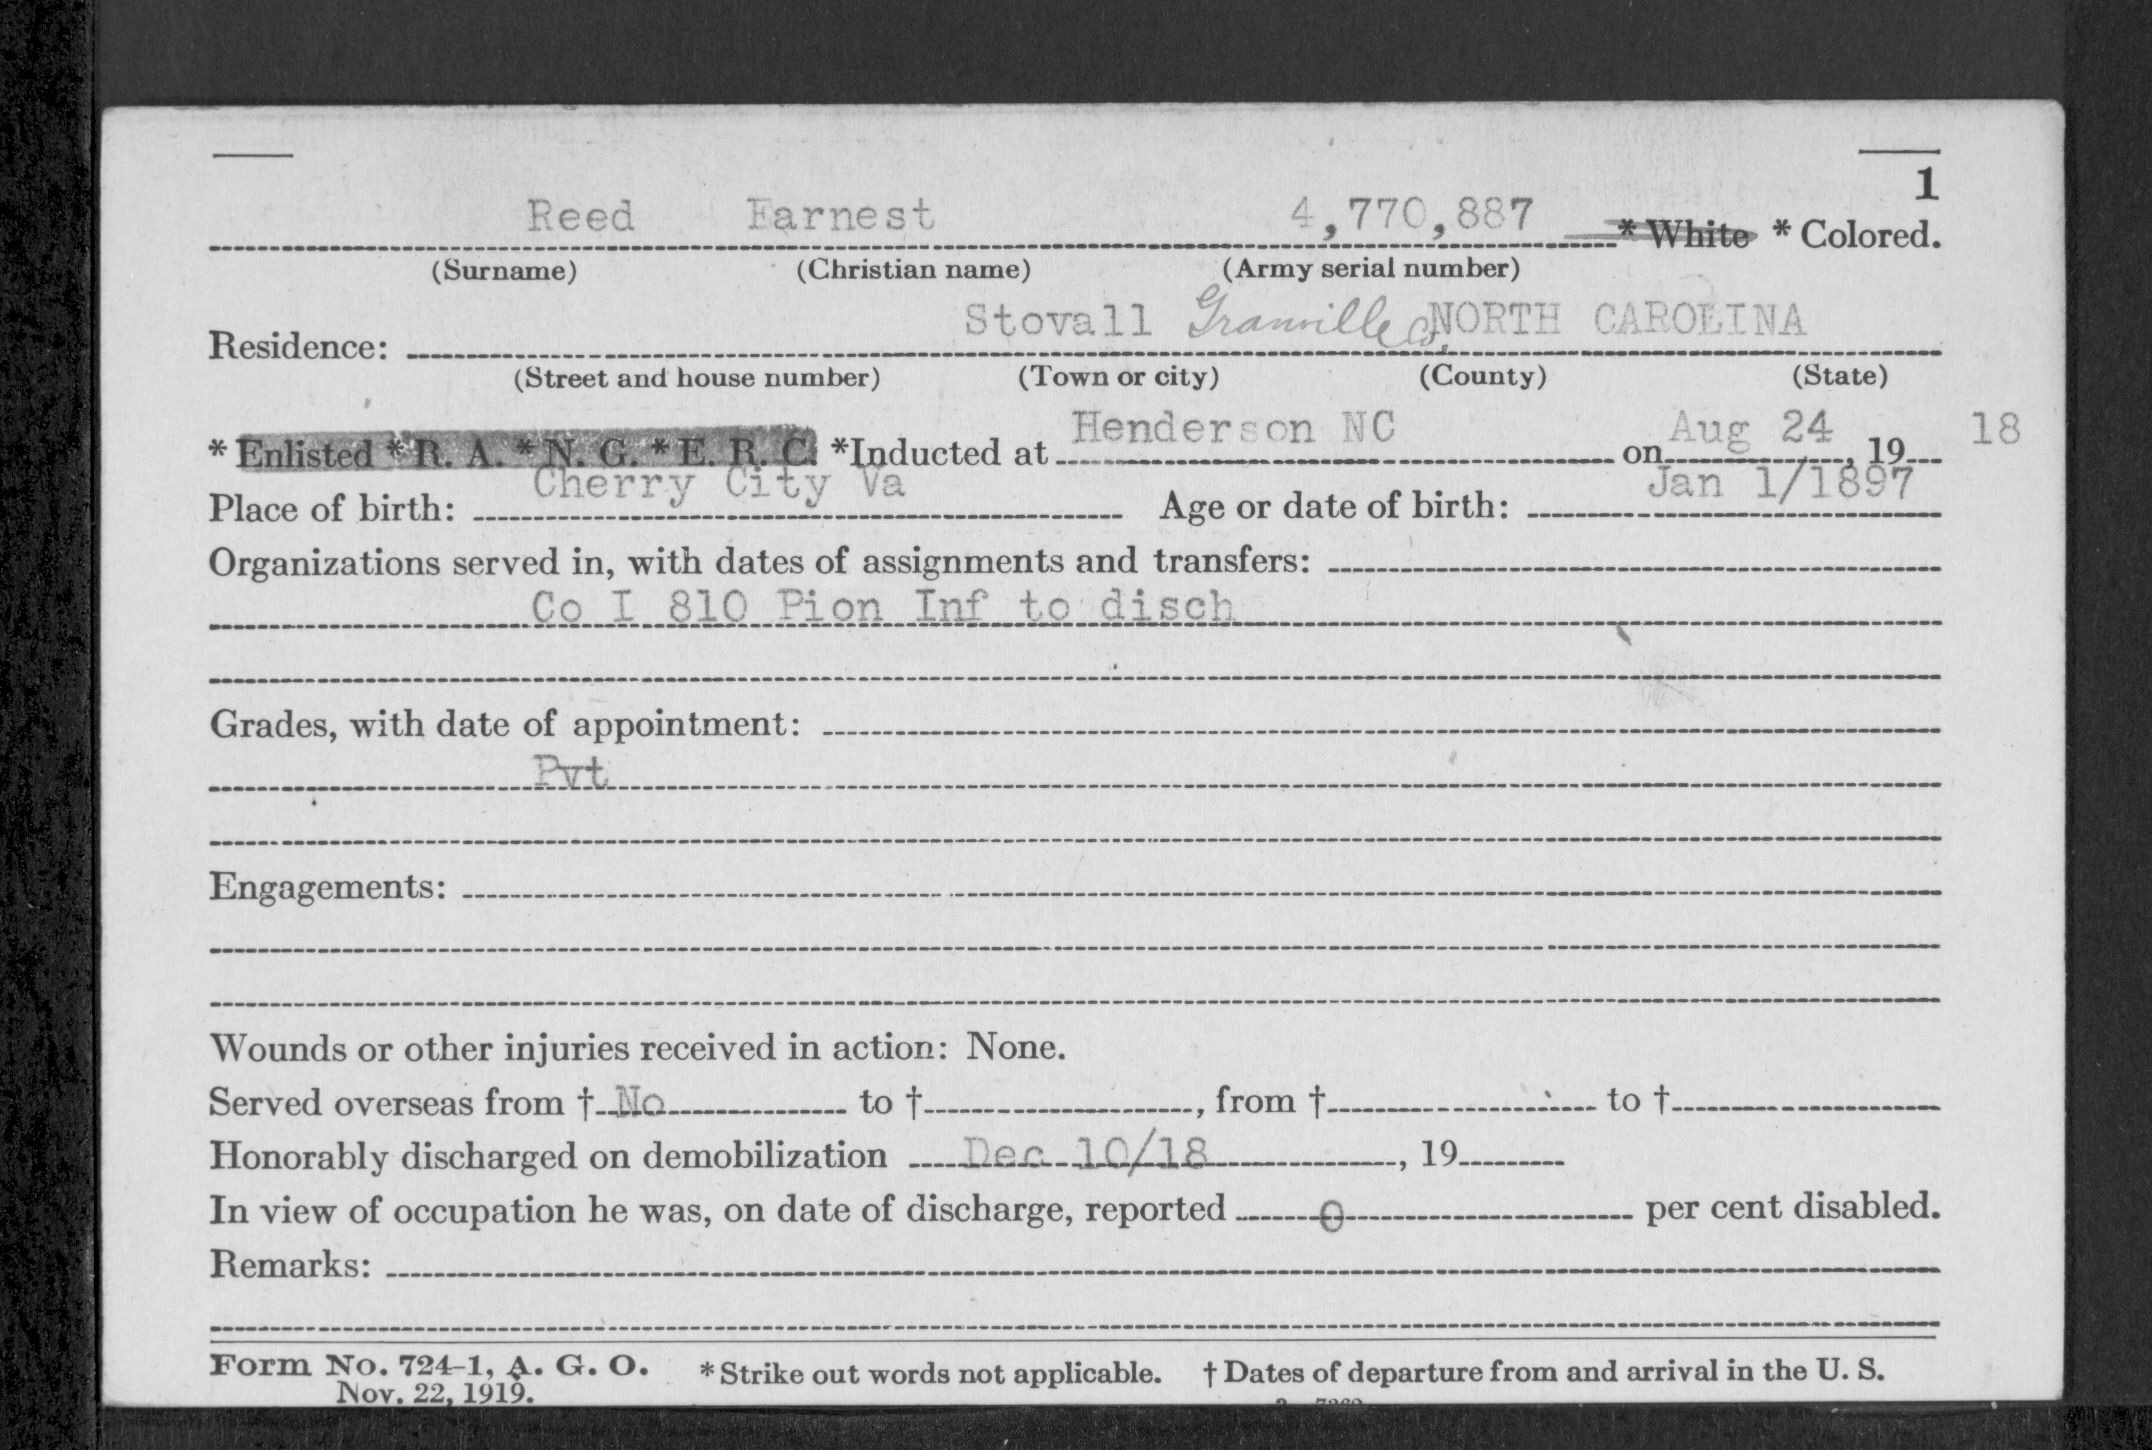 1
Reed Earnest 4,770,887 * White * Colored.
(Surname) (Christian name) (Army serial number)
Residence: Stovall Granville Co, NORTH CAROLINA
(Street and house number) (Town or city) (County) (State)
* Enlisted * R. A. * N. G. * E. R. C. *Inducted at Henderson NC on Aug 24, 19 18
Place of birth: Cherry City Va Age or date of birth: Jan 1/1897
Organizations served in, with dates of assignments and transfers:
Co I 810 Pion Inf to disch
Grades, with date of appointment:
Pvt
Engagements:
Wounds or other injuries received in action: None.
Served overseas from † No to †, from † to †
Honorably discharged on demobilization Dec 10/18, 19
In view of occupation he was, on date of discharge, reported 0 per cent disabled.
Remarks:
Form No. 724-1, A. G. O. * Strike out words not applicable. † Dates of departure from and arrival in the U. S.
Nov. 22, 1919.